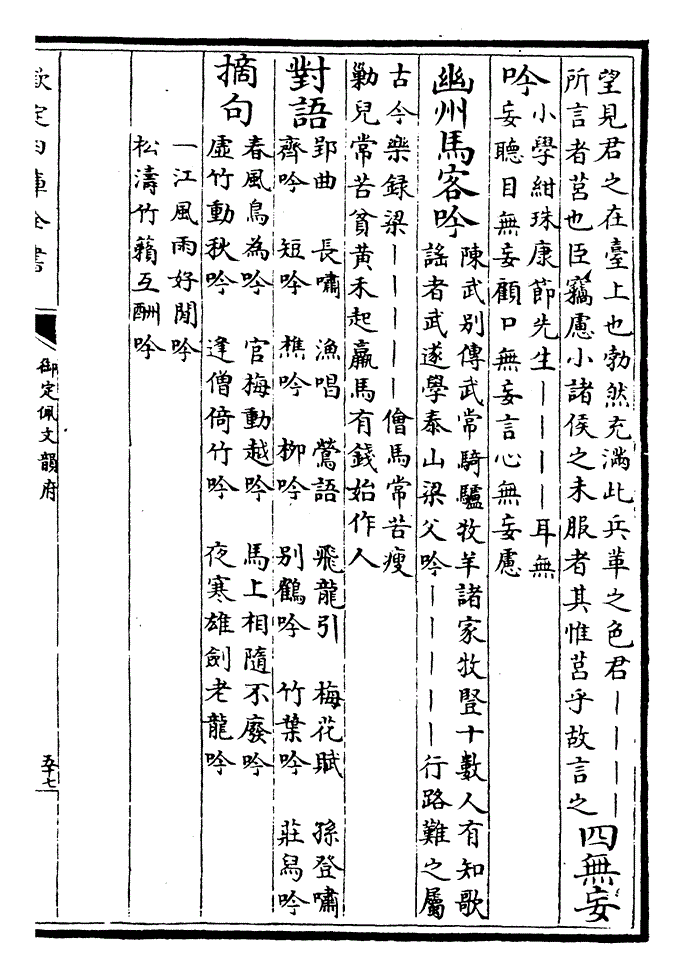 望見君之在臺上也勃然充滿此兵革之色君丨丨丨丨
所言者莒也臣竊慮小諸侯之未服者其惟莒乎故言之
四無妄
吟
小學紺珠康節先生丨丨丨丨耳無
妄聽目無妄顧口無妄言心無妄慮
幽州馬客吟
陳武别傳武常騎驢牧羊諸家牧豎十數人有知歌
謡者武遂學泰山梁父吟丨丨丨丨丨行路難之屬
古今樂録梁丨丨丨丨丨儈馬常苦瘦
勦兒常苦貧黄禾起羸馬有錢始作人
對語
郢曲 長嘯 漁唱 鶯語 飛龍引 梅花賦 孫登嘯
齊吟 短吟 樵吟 柳吟 别鶴吟 竹葉吟 莊舄吟
摘句
春風鳥為吟 官梅動越吟 馬上相隨不廢吟
虛竹動秋吟 逢僧倚竹吟 夜寒雄劍老龍吟
一江風雨好閒吟
松濤竹籟互酬吟
欽定四庫全書
御定佩文韻府
五十七